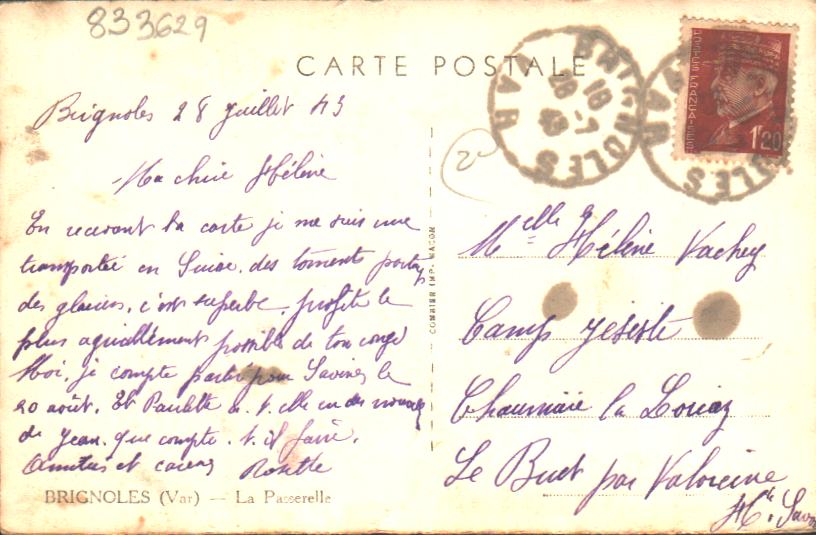 833629
CARTE POSTALE
BRIGNOLES
18
28-7
43
VAR
POSTES FRANÇAISES
1F20
Brignoles 28 juillet 43
Ma chère Hélène
En recevant ta carte je me suis vue
transportée en Suisse. des torrents partout
des glaciers, c'est superbe, profite le
plus agréablement possible de ton congé
Moi, je compte partir pour Savines le
20 août. Et Paulette a-t-elle eu des nouvelles
de Jean, que compte-t-il faire.
Amitiés et caresses Rosette
BRIGNOLES (Var) — La Passerelle
COMBIER IMP. MACON
Melle Hélène Vachey
Camp jéciste
Chaumière la
Le Buet par Valorcine
Hte Savoie